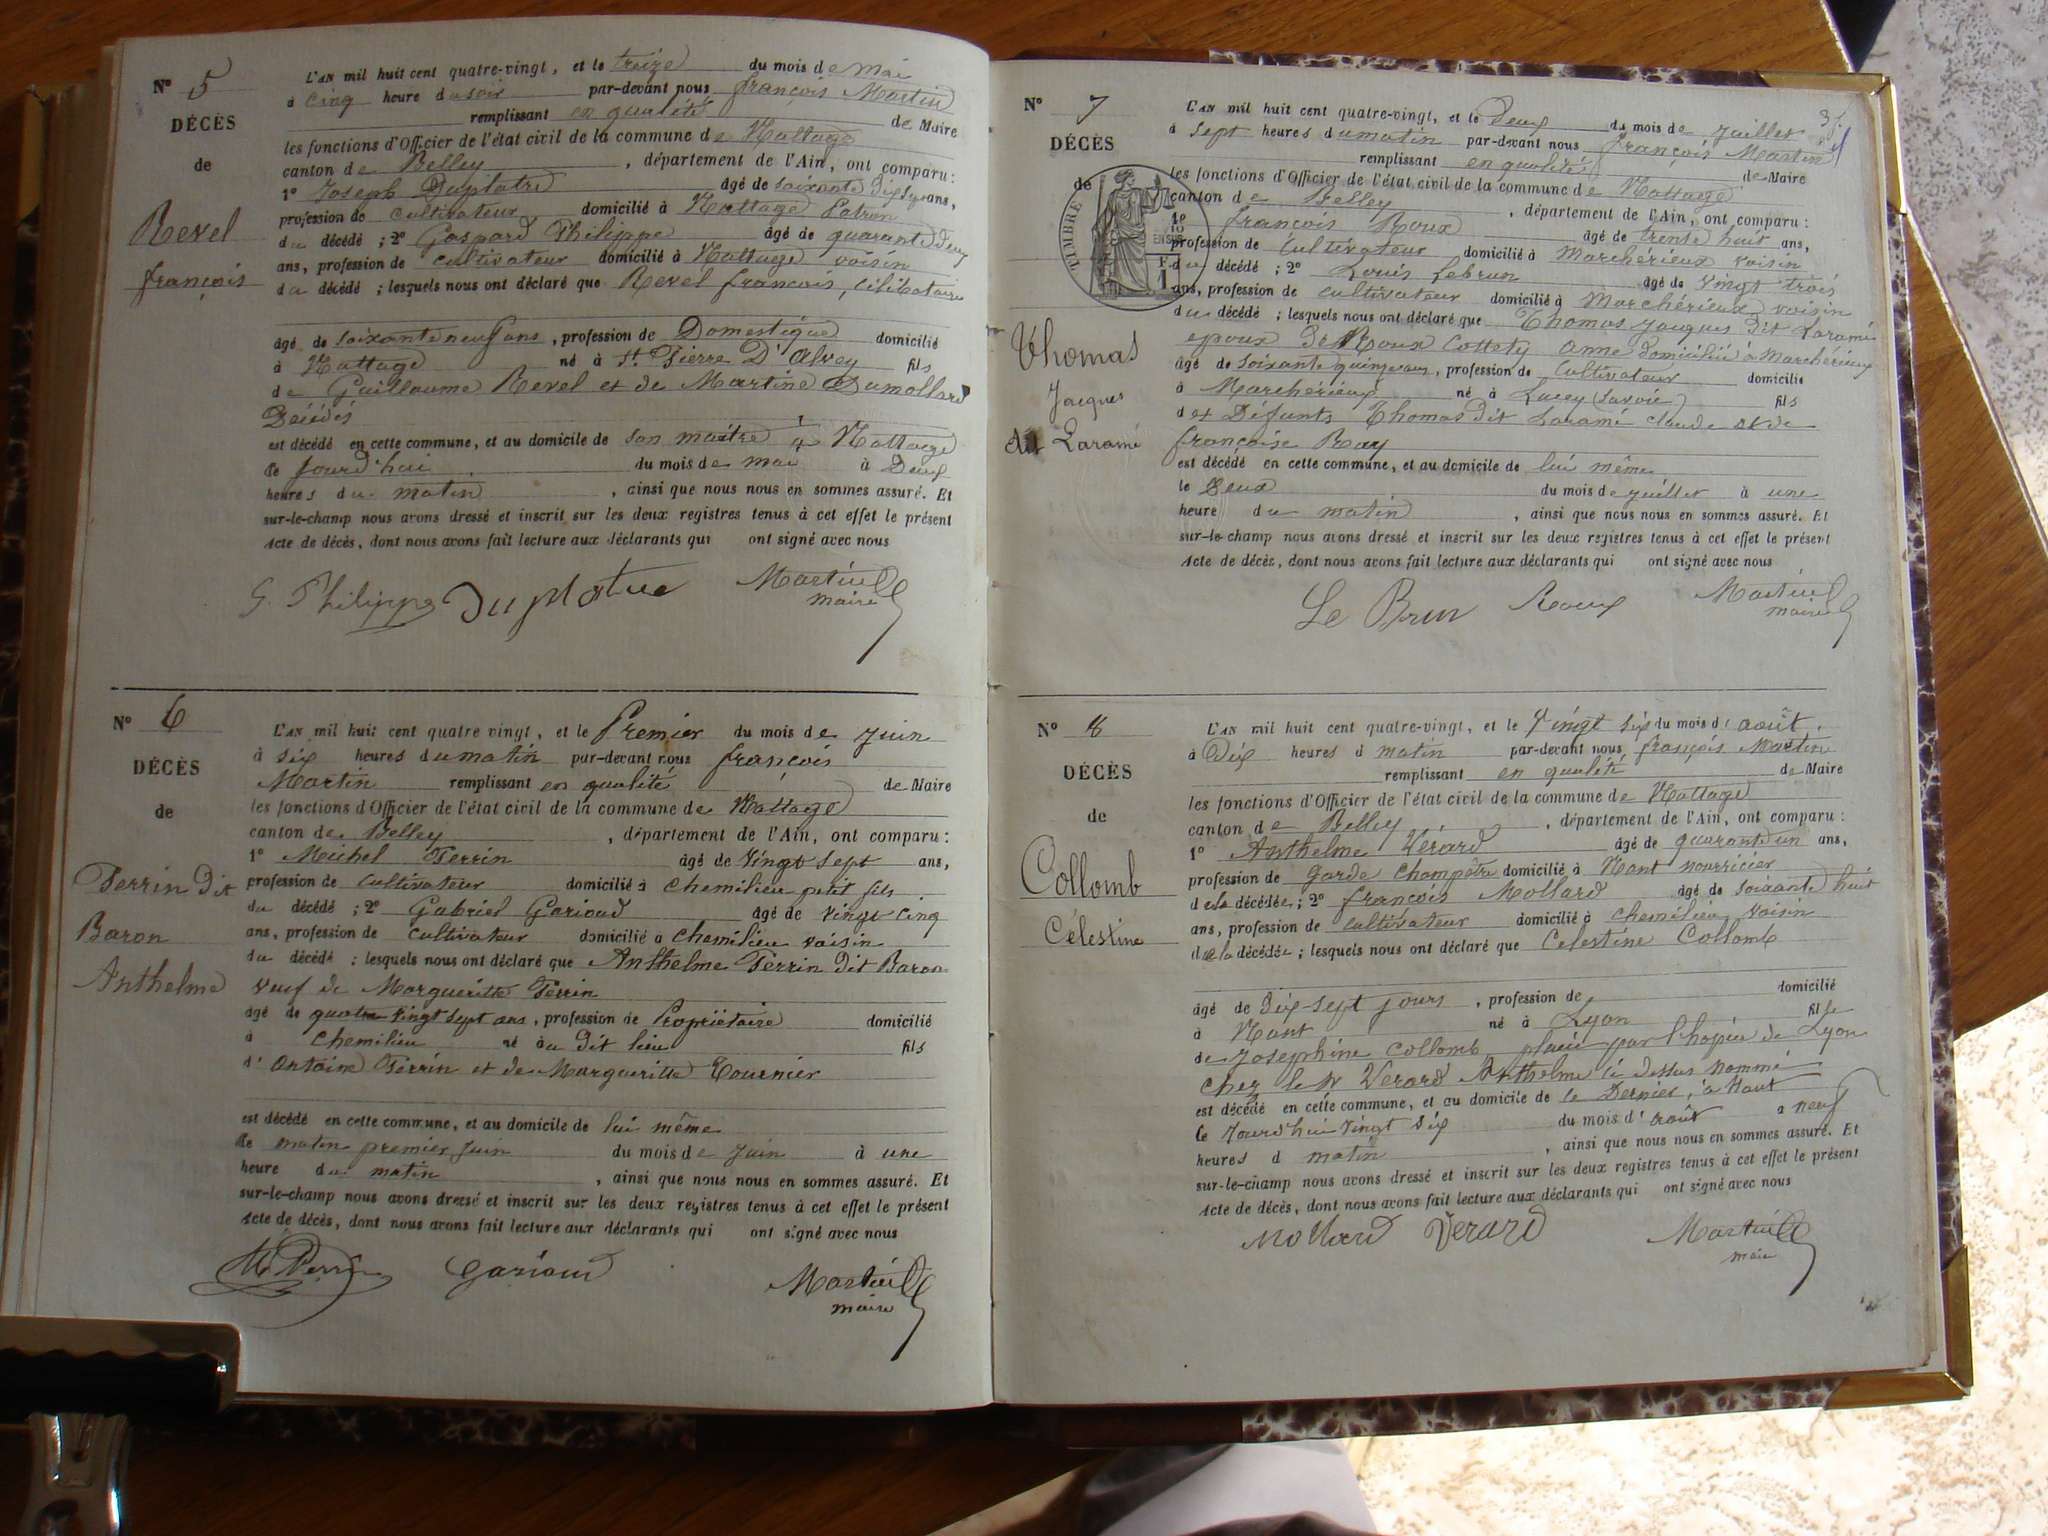 N° 5
DÉCÈS
de
Revel
françois
L'AN mil huit cent quatre-vingt, et le treize du mois de mai
à cinq heure du soir par-devant nous françois Martin
remplissant en qualité de Maire
les fonctions d'Officier de l'état civil de la commune de Nattage
canton de Belley, département de l'Ain, ont comparu :
1° Joseph Duplatre âgé de soixante dix ans,
profession de cultivateur domicilié à Nattage Patron
du décédé ; 2° Gaspard Philippe âgé de quarante deux
ans, profession de cultivateur domicilié à Nattage voisin
du décédé ; lesquels nous ont déclaré que Revel françois, célibataire
âgé de soixante neuf ans, profession de Domestique domicilié
à Nattage né à St. Pierre D'Alvey fils
de Guillaume Revel et de Martine Dumollard
Décédés
est décédé en cette commune, et au domicile de son maître à Nattage
le jourd'hui du mois de mai à Deux
heures du matin, ainsi que nous nous en sommes assuré. Et
sur-le-champ nous avons dressé et inscrit sur les deux registres tenus à cet effet le présent
Acte de décès, dont nous avons fait lecture aux déclarants qui ont signé avec nous
G. Philippe Duplatre Martin
maire
N° 6
DÉCÈS
de
Perrin Dit
Baron
Anthelme
L'AN mil huit cent quatre vingt, et le Premier du mois de Juin
à six heures du matin par-devant nous françois
Martin remplissant en qualité de Maire
les fonctions d'Officier de l'état civil de la commune de Nattage
canton de Belley, département de l'Ain, ont comparu :
1° Michel Perrin âgé de vingt sept ans,
profession de cultivateur domicilié à Chemilieu petit fils
du décédé ; 2° Gabriel Garioud âgé de vingt cinq
ans, profession de cultivateur domicilié à Chemilieu voisin
du décédé ; lesquels nous ont déclaré que Anthelme Perrin Dit Baron
veuf de Margueritte Perrin
âgé de quatre vingt sept ans, profession de Propriétaire domicilié
à Chemilieu né au Dit lieu fils
d'Antoine Perrin et de Margueritte Tournier
est décédé en cette commune, et au domicile de lui même
le matin premier juin du mois de Juin à une
heure du matin, ainsi que nous nous en sommes assuré. Et
sur-le-champ nous avons dressé et inscrit sur les deux registres tenus à cet effet le présent
Acte de décès, dont nous avons fait lecture aux déclarants qui ont signé avec nous
M Perrin Garioud Martin
maire
N° 7
DÉCÈS
de
TIMBRE
Thomas
Jacques
dit Laramé
L'AN mil huit cent quatre-vingt, et le Deux du mois de Juillet
à sept heures du matin par-devant nous françois Martin
remplissant en qualité de Maire
les fonctions d'Officier de l'état civil de la commune de Nattage
canton de Belley, département de l'Ain, ont comparu :
1° françois Roux âgé de trente huit ans,
profession de cultivateur domicilié à Marchérieux voisin
du décédé ; 2° Louis Lebrun âgé de vingt trois
ans, profession de cultivateur domicilié à Marchérieux voisin
du décédé ; lesquels nous ont déclaré que Thomas Jacques dit Laramé
epoux de Roux Anne domiciliée à Marchérieux
âgé de soixante quinze ans, profession de cultivateur domicilié
à Marchérieux né à Lucey (Savoie) fils
des Défunts Thomas dit Laramé Claude et de
françoise Ray
est décédé en cette commune, et au domicile de lui même
le Deux du mois de juillet à une
heure du matin, ainsi que nous nous en sommes assuré. Et
sur-le-champ nous avons dressé et inscrit sur les deux registres tenus à cet effet le présent
Acte de décès, dont nous avons fait lecture aux déclarants qui ont signé avec nous
Le Brun Roux Martin
maire
N° 8
DÉCÈS
de
Collomb
Célestine
L'AN mil huit cent quatre-vingt, et le Vingt six du mois d'août
à Dix heures d matin par-devant nous françois Martin
remplissant en qualité de Maire
les fonctions d'Officier de l'état civil de la commune de Nattage
canton de Belley, département de l'Ain, ont comparu :
1° Anthelme Vérard âgé de quarante un ans,
profession de Garde Champêtre domicilié à Nant nourricier
de la décédée ; 2° françois Mollard âgé de soixante huit
ans, profession de cultivateur domicilié à Chemilieu voisin
de la décédée ; lesquels nous ont déclaré que Celestine Collomb
âgé de Dix-sept jours, profession de domicilié
à Nant né à Lyon fille
de Josephine Collomb placée par l'hopice de Lyon
chez le Sr Verard Anthelme ci dessus nommé
est décédé en cette commune, et au domicile de ce Dernier, à Nant
le Jourd'hui vingt six du mois d'août à neuf
heures d matin, ainsi que nous nous en sommes assuré. Et
sur-le-champ nous avons dressé et inscrit sur les deux registres tenus à cet effet le présent
Acte de décès, dont nous avons fait lecture aux déclarants qui ont signé avec nous
Mollard Verard Martin
maire